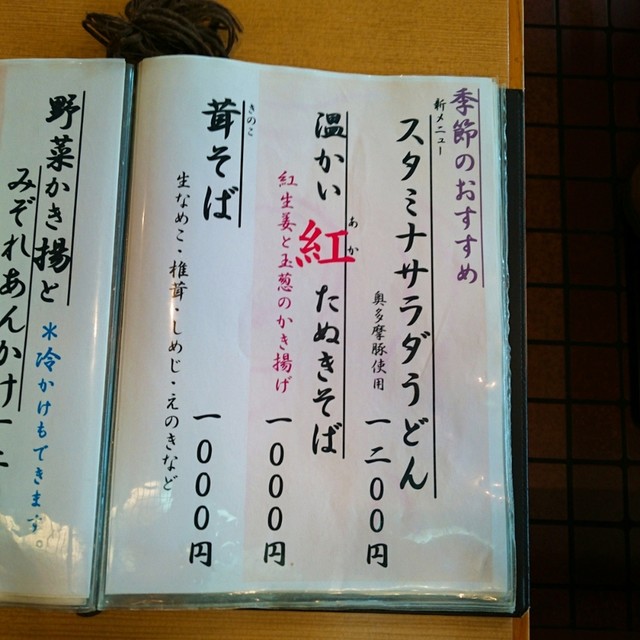 季節のおすすめ
新メニュー
スタミナサラダうどん
奥多摩豚使用
一二〇〇円
温かい紅たぬきそば
あか
紅生姜と玉葱のかき揚げ
一〇〇〇円
きのこ
茸そば
生なめこ・椎茸・しめじ・えのきなど
一〇〇〇円
野菜かき揚と
みぞれあんかけ
＊冷かけもできます。
一二